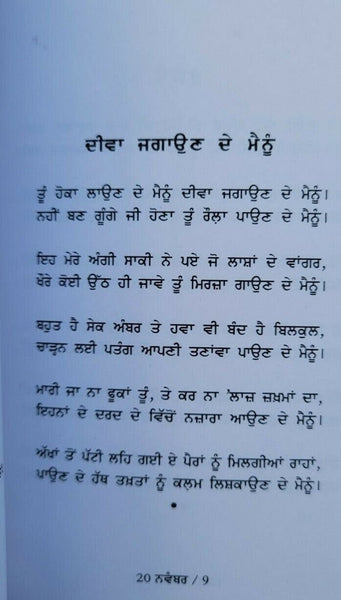 ਦੀਵਾ ਜਗਾਉਣ ਦੇ ਮੈਨੂੰ
ਤੂੰ ਹੋਕਾ ਲਾਉਣ ਦੇ ਮੈਨੂੰ ਦੀਵਾ ਜਗਾਉਣ ਦੇ ਮੈਨੂੰ।
ਨਹੀਂ ਬਣ ਗੂੰਗੇ ਜੀ ਹੋਣਾ ਤੂੰ ਰੌਲਾ ਪਾਉਣ ਦੇ ਮੈਨੂੰ।
ਇਹ ਮੇਰੇ ਅੰਗੀ ਸਾਕੀ ਨੇ ਪਏ ਜੋ ਲਾਸ਼ਾਂ ਦੇ ਵਾਂਗਰ,
ਖੌਰੇ ਕੋਈ ਉੱਠ ਹੀ ਜਾਵੇ ਤੂੰ ਮਿਰਜ਼ਾ ਗਾਉਣ ਦੇ ਮੈਨੂੰ।
ਬਹੁਤ ਹੈ ਸੇਕ ਅੰਬਰ ਤੇ ਹਵਾ ਵੀ ਬੰਦ ਹੈ ਬਿਲਕੁਲ,
ਚਾੜ੍ਹਨ ਲਈ ਪਤੰਗ ਆਪਣੀ ਤਣਾਂਵਾ ਪਾਉਣ ਦੇ ਮੈਨੂੰ।
ਮਾਰੀ ਜਾ ਨਾ ਫੂਕਾਂ ਤੂੰ, ਤੇ ਕਰ ਨਾ 'ਲਾਜ਼ ਜ਼ਖ਼ਮਾਂ ਦਾ,
ਇਹਨਾਂ ਦੇ ਦਰਦ ਦੇ ਵਿੱਚੋਂ ਨਜ਼ਾਰਾ ਆਉਣ ਦੇ ਮੈਨੂੰ।
ਅੱਖਾਂ ਤੋਂ ਪੱਟੀ ਲਹਿ ਗਈ ਏ ਪੈਰਾਂ ਨੂੰ ਮਿਲਗੀਆਂ ਰਾਹਾਂ,
ਪਾਉਣ ਦੇ ਹੱਥ ਤਖ਼ਤਾਂ ਨੂੰ ਕਲਮ ਲਿਸ਼ਕਾਉਣ ਦੇ ਮੈਨੂੰ।
•
20 ਨਵੰਬਰ / 9